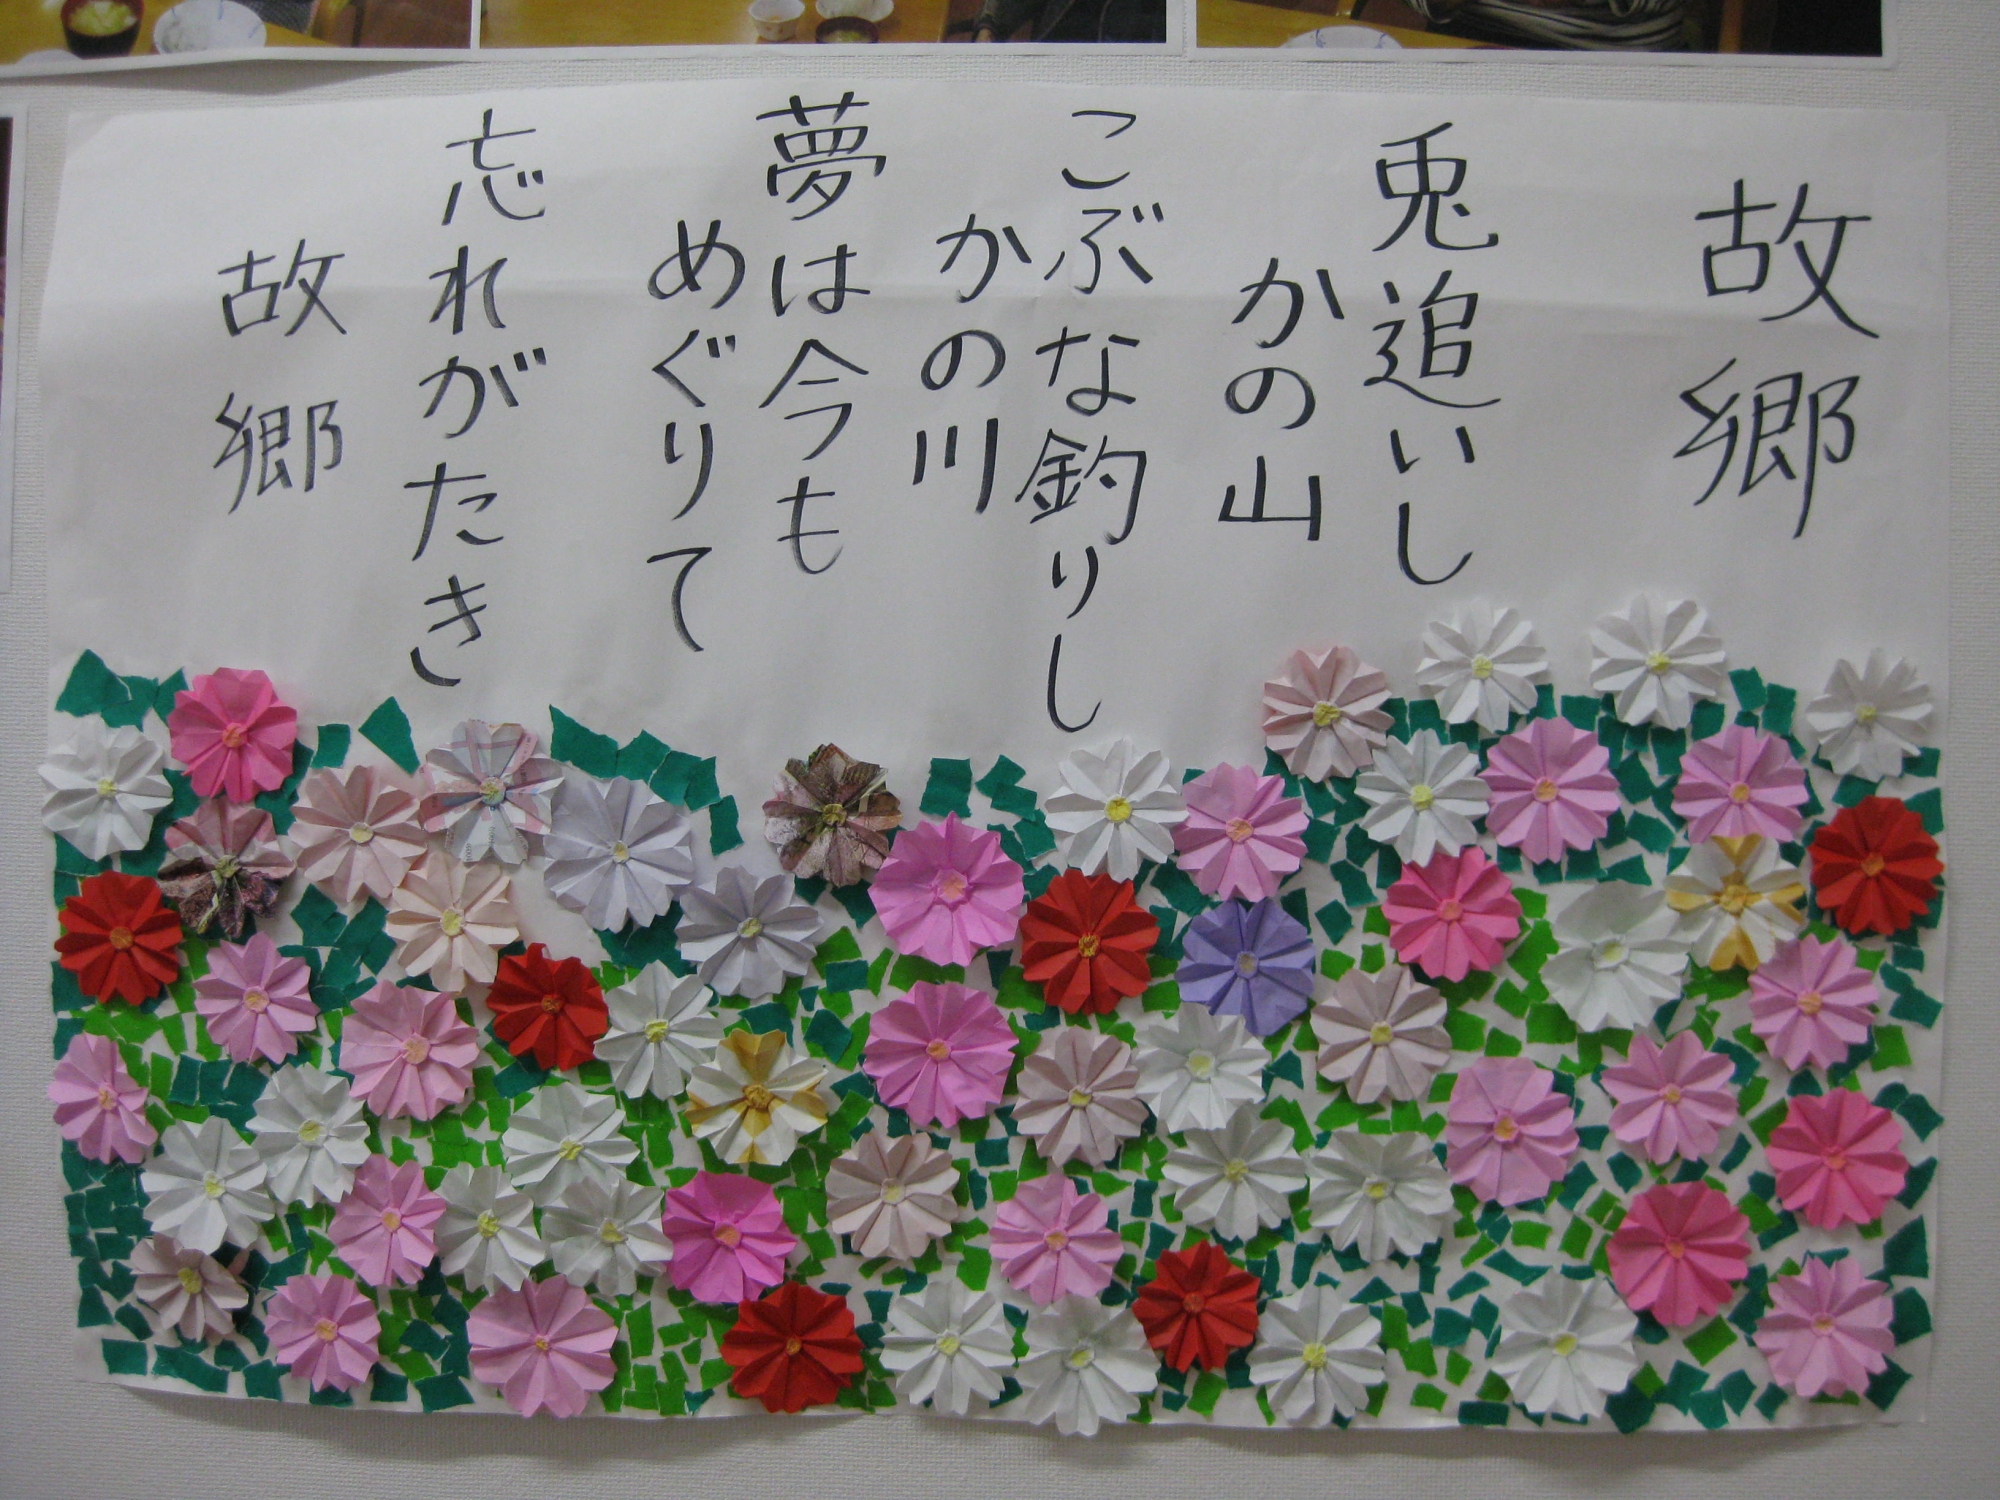 故郷
兎追いし
かの山
こぶな釣りし
かの川
夢は今も
めぐりて
忘れがたき
故郷